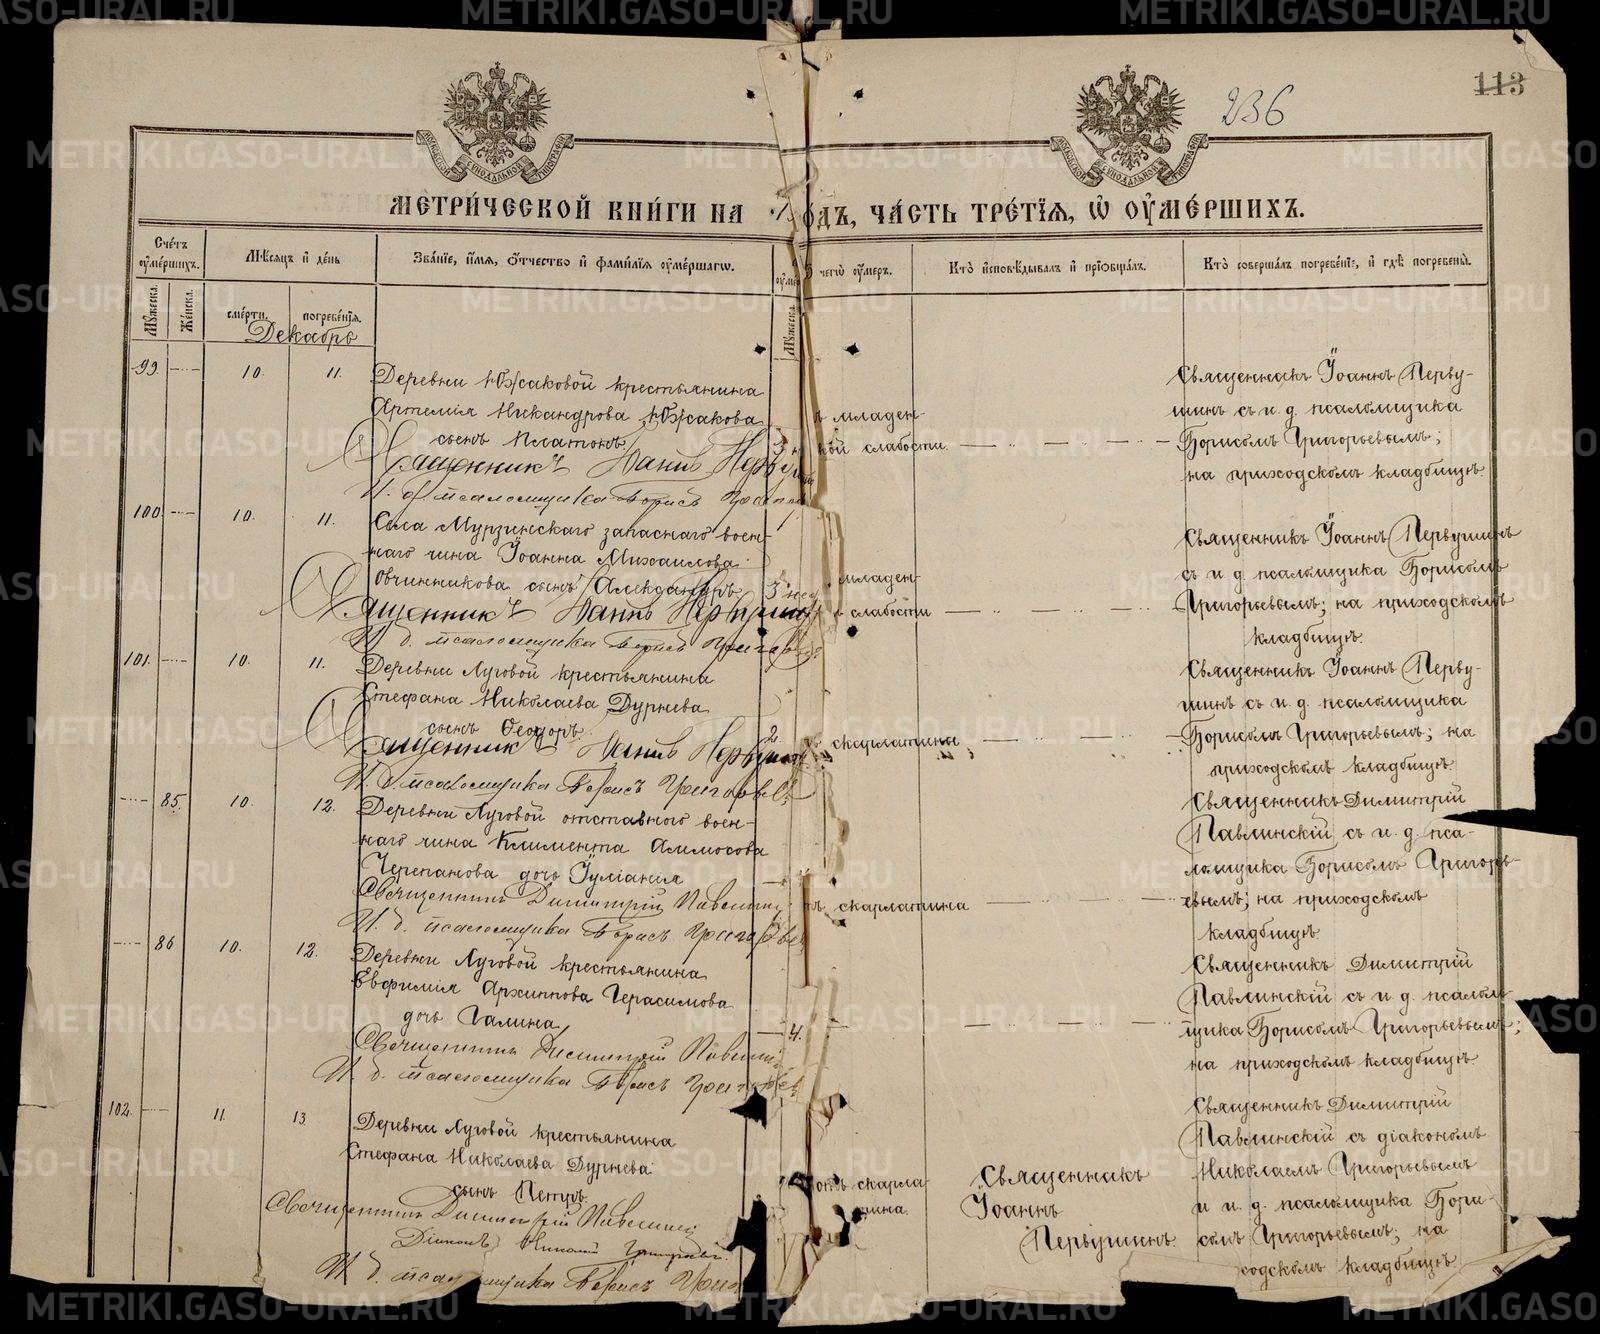 113
236
МОСКОВСКОЙ СѴНОДАЛЬНОЙ ТИПОГРАФІИ
МОСКОВСКОЙ СѴНОДАЛЬНОЙ ТИПОГРАФІИ
МЕТРИ́ЧЕСКОЙ КНИ́ГИ НА
ОДЪ, ЧА́СТЬ ТРЕ́ТІѦ, Ѽ ОУ҆МЕ́РШИХЪ.
Сче́тъ оу҆ме́ршихъ.
Мѣ́сяцъ и҆ де́нь
Зва́нїе, и҆́мя, ѻ҆́тчество и҆ фами́лїя оу҆ме́ршагѡ.
чегѡ̀ оу҆́меръ.
Кто̀ и҆сповѣ́дывалъ и҆ прїѻбща́лъ.
Кто̀ соверша́лъ погребе́нїе, и҆ гдѣ̀ погребены̀.
Мꙋ́жеска.
Же́нска.
сме́рти.
погребе́нїя.
Мꙋ́жеска.
Декабрь
99. 10. 11. Деревни Южаковой крестьянина
Артемія Никандрова Южакова
сынъ Платонъ 3
Священникъ Іоаннъ Перву
И. д. псаломщика Борисъ Григор
младен-
кой слабости
Священникъ Іоаннъ Перву-
шинъ съ и. д. псаломщика
Борисомъ Григорьевымъ;
на приходскомъ кладбищѣ
100. 10. 11. Села Мурзинскаго запаснаго воен-
наго чина Іоанна Михаилова
Овчинникова сынъ Александръ 3 нед
Священникъ Іоаннъ Первушинъ
И. д. псаломщика Борисъ Григорьев
младен-
слабости
Священникъ Іоаннъ Первушинъ
съ и. д. псаломщика Борисомъ
Григорьевымъ; на приходскомъ
кладбищѣ
101. 10. 11. Деревни Луговой крестьянина
Стефана Николаева Дурнева
сынъ Ѳеодоръ 2
Священникъ Іоаннъ Первушинъ
И. д. псаломщика Борисъ Григорьевъ
скарлатины
Священникъ Іоаннъ Перву-
шинъ съ и. д. псаломщика
Борисомъ Григорьевымъ; на
приходскомъ кладбищѣ
85. 10. 12. Деревни Луговой отставного воен-
наго чина Климента
Черепанова дочь Іуліанія
Священникъ Димитрій Павлинскій
И. д. псаломщика Борисъ Григорьевъ
скарлатина
Священникъ Димитрій
Павлинскій съ и. д. пса-
ломщика Борисомъ Григорь-
евымъ; на приходскомъ
кладбищѣ
86 10. 12. Деревни Луговой крестьянина
Евфимія Архиппова Герасимова
дочь Галина 4.
Священникъ Димитрій Павлинскій
И. д. псаломщика Борисъ Григорьев
Священникъ Димитрій
Павлинскій съ и. д. псалом-
щика Борисомъ Григорьевымъ;
на приходскомъ кладбищѣ
102. 11. 13. Деревни Луговой крестьянина
Стефана Николаева Дурнева
сынъ Петръ
Священникъ Димитрій Павлинскій
Діаконъ Николай Григорьевъ
И. д. псаломщика Борисъ Григо
отъ скарла-
тина.
Священникъ
Іоаннъ
Первушинъ
Священникъ Димитрій
Павлинскій съ діакономъ
Николаемъ Григорьевымъ
и и. д. псаломщика Бори-
сомъ Григорьевымъ; на
ходскомъ кладбищѣ
METRIKI.GASO-URAL.RU